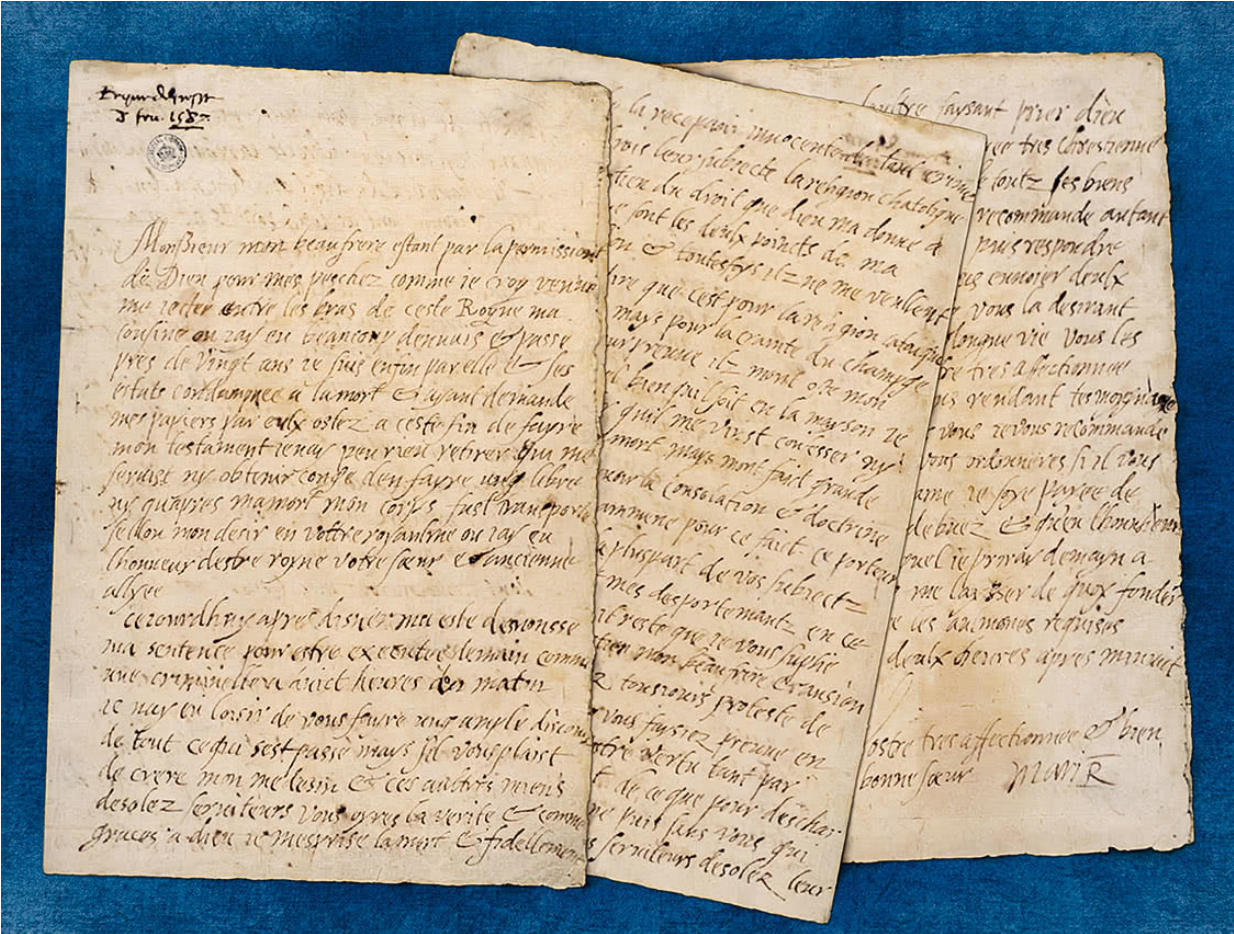 8 feu. 1587
Monsieur mon beaufrere estant par la permission
de Dieu pour mes peschez comme ie croy venue
me ietter entre les bras de ceste Royne ma
cousine ou iay eu beaucoup dennuis & passe
pres de vingt ans ie suis enfin par elle & ses
estats condampnee a la mort & ayant demande
mes papiers par eulx ostez a ceste fin de fayre
mon testament ie nay peu rien retirer qui me
seruist ny obtenir conge den fayre ung libre
ny quapres ma mort mon corps fust transporte
sellon mon desir en votre royaulme ou iay eu
lhonneur destre royne votre sœur & ancienne
allyee
ceiourdhuy apres disner ma este desnonsse
ma sentence pour estre executee demain comme
une criminelle a huict heures du matin
ie nay eu loisir de vous fayre ung ample discours
de tout ce qui sest passe mays sil vous plaist
de crere mon medesin & ces aultres miens
desolez seruiteurs vous oyres la verite & comme
graces a dieu ie mesprise la mort & fidellement
la recepuoir innocente de tout crime
leur subiecte la religion chatolique
du droit que dieu ma donne a
sont les deulx poincts de ma
& toutesfoys ilz ne me veullent
dire que cest pour la religion
mays pour la crainte du champge
preuue ilz mont oste mon
bien quil soit en la mayson ie
quil me vinst confesser ny
mort mays mont fait grande
la consolation & doctrine
ammene pour ce faict ce porteur
la pluspart de vos subiectz
mes desportemantz en ce
reste que ie vous suplie
mon beaufrere & ansien
tousiours proteste de
vous faysiez preuue en
vertu tant par
de ce que pour deschar
puis sans vous qui
seruiteurs desolez leur
faysant prier dieu
tres chrestienne
toutz ses biens
recommande autant
puis respondre
ennoier deulx
vous la desirant
longue vie Vous les
tres affectionnee
rendant tesmoygnage
vous ie vous recommande
vous ordonneres si il vous
ame ie soye payee de
debuez & quen lhonneur
ie priray demayn a
me laisser de quoy fonder
les aulmones requises
deulx heures apres minuit
Vostre tres affectionnee & bien
bonne sœur Mari R